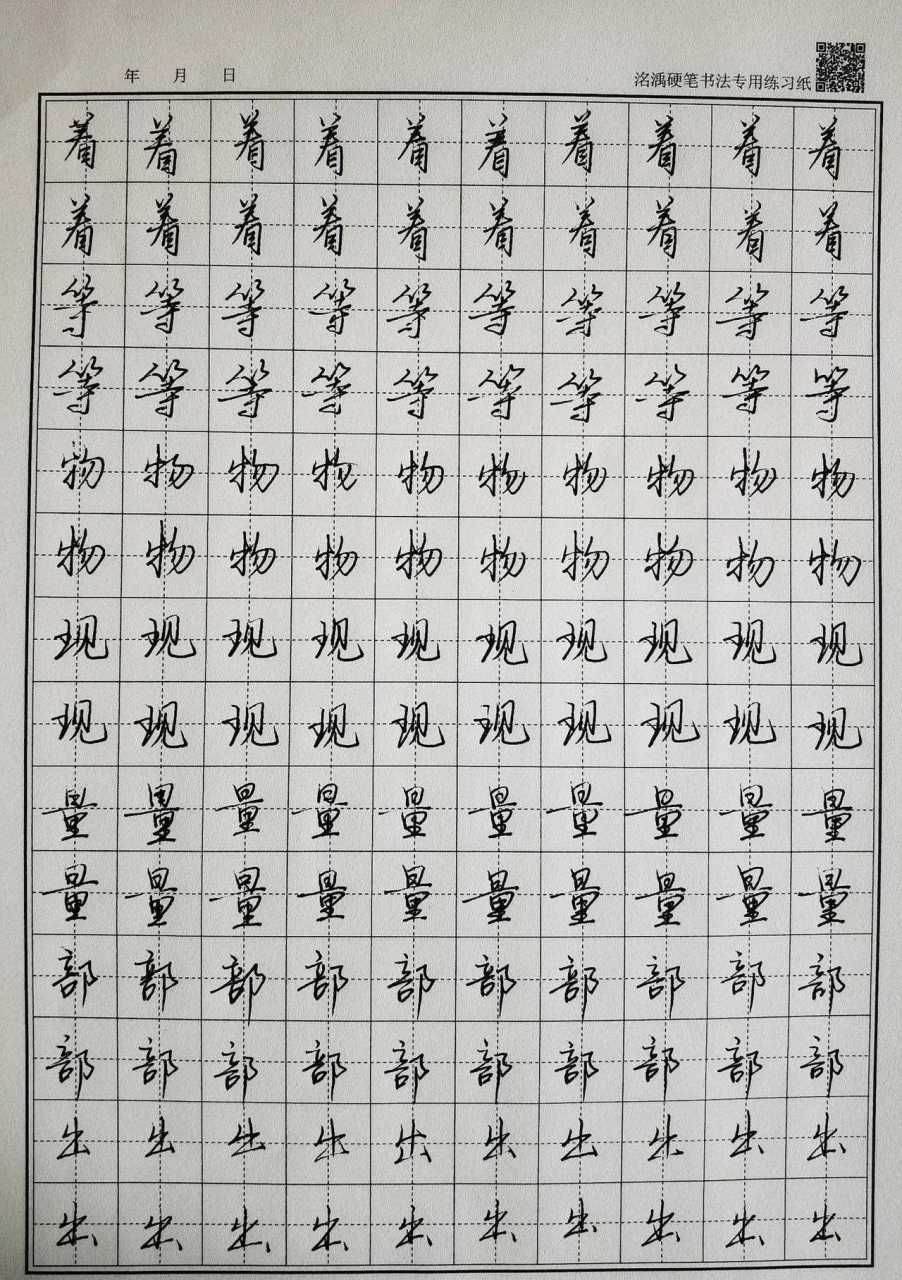 年 月 日 洺渪硬笔书法专用练习纸
着着着着着着着着着着
着着着着着着着着着着
等等等等等等等等等等
等等等等等等等等等等
物物物物物物物物物物
物物物物物物物物物物
现现现现现现现现现现
现现现现现现现现现现
量量量量量量量量量量
量量量量量量量量量量
部部部部部部部部部部
部部部部部部部部部部
出出出出出出出出出出
出出出出出出出出出出